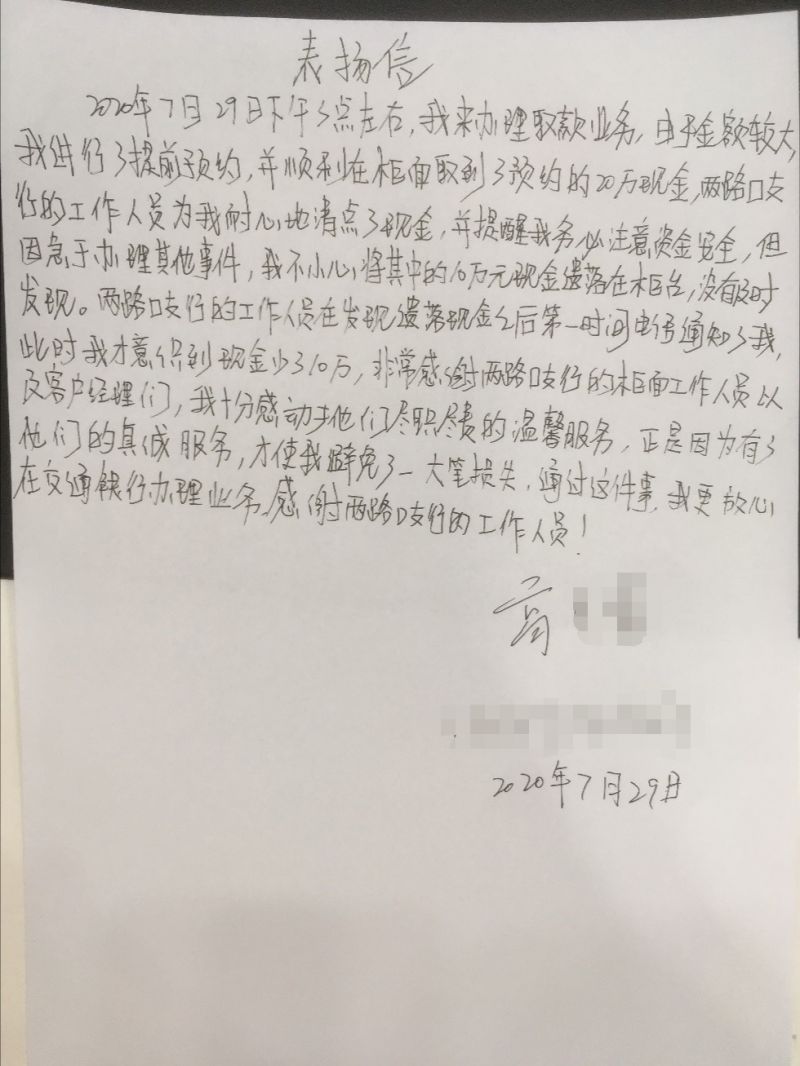 表扬信
2020年7月29日下午3点左右，我来办理取款业务，由于金额较大，
我进行了提前预约，并顺利在柜面取到了预约的20万现金，两路口支
行的工作人员为我耐心地清点了现金，并提醒我务必注意资金安全，但
因急于办理其他事件，我不小心将其中的10万元现金遗落在柜台，没有及时
发现。两路口支行的工作人员在发现遗落现金之后第一时间电话通知了我，
此时我才意识到现金少了10万，非常感谢两路口支行的柜面工作人员以
及客户经理们，我十分感动于他们尽职尽责的温馨服务，正是因为有了
他们的真诚服务，才使我避免了一大笔损失，通过这件事，我更放心
在交通银行办理业务，感谢两路口支行的工作人员！
2020年7月29日